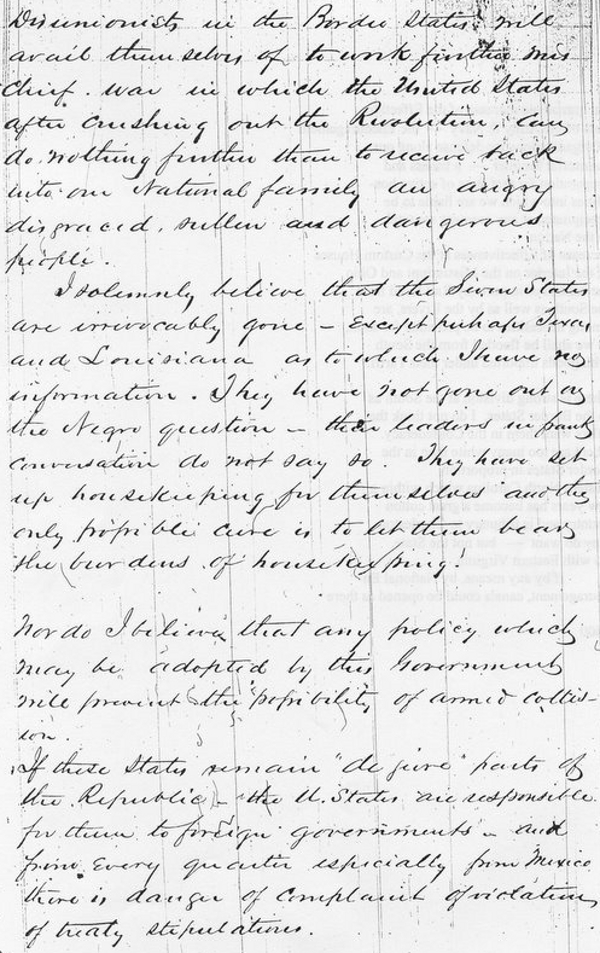 Disunionists in the Border States will
avail themselves of to work further mis-
chief. War in which the United States
after crushing out the Revolution, can
do nothing further than to receive back
into our National family an angry
disgraced, sullen and dangerous
people.
I solemnly believe that the Seven States
are irrevocably gone - except perhaps Texas
and Louisiana as to which I have no
information. They have not gone out on
the Negro question - their leaders in frank
conversation do not say so. They have set
up housekeeping for themselves and the
only possible cure is to let them bear
the burdens of housekeeping!
Nor do I believe that any policy which
may be adopted by this Government
will prevent the possibility of armed collis-
ion.
If these States remain "de jure" parts of
the Republic - the U. States are responsible
for them to foreign governments - and
from every quarter especially from Mexico
there is danger of complaint of violation
of treaty stipulations.